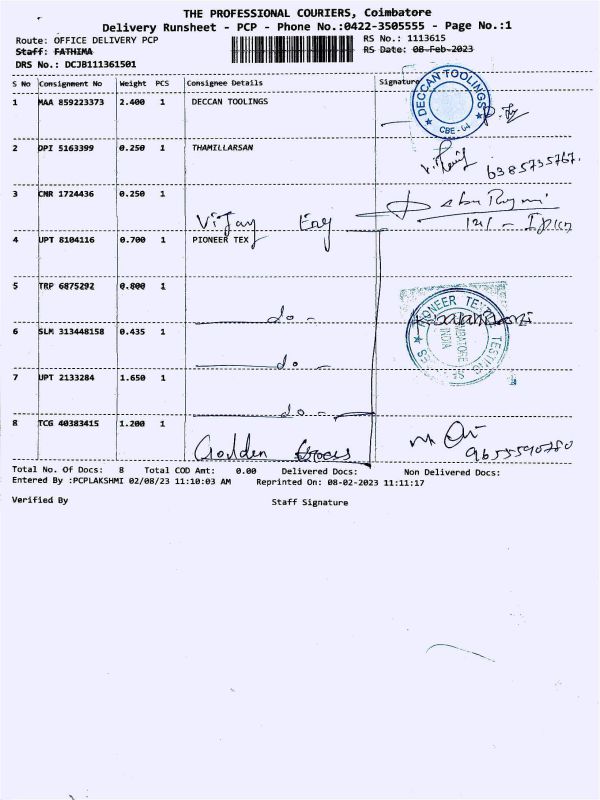 THE PROFESSIONAL COURIERS, Coimbatore
Delivery Runsheet - PCP - Phone No.:0422-3505555 - Page No.:1
Route: OFFICE DELIVERY PCP
RS No.: 1113615
Staff: FATHIMA
RS Date: 08-Feb-2023
DRS No.: DCJB111361501
S No Consignment No Weight PCS Consignee Details Signature
1 MAA 859223373 2.400 1 DECCAN TOOLINGS
DECCAN TOOLINGS
CBE - 04
2 DPI 5163399 0.250 1 THAMILLARSAN
6385735767.
3 CNR 1724436 0.250 1
Vijay Eng
4 UPT 8104116 0.700 1 PIONEER TEX
5 TRP 6875292 0.800 1
do -
PIONEER TEX TESTING
INDIA
6 SLM 313448158 0.435 1
do -
7 UPT 2133284 1.650 1
do -
8 TCG 40383415 1.200 1
Golden
9655590780
Total No. Of Docs: 8 Total COD Amt: 0.00 Delivered Docs: Non Delivered Docs:
Entered By :PCPLAKSHMI 02/08/23 11:10:03 AM Reprinted On: 08-02-2023 11:11:17
Verified By Staff Signature